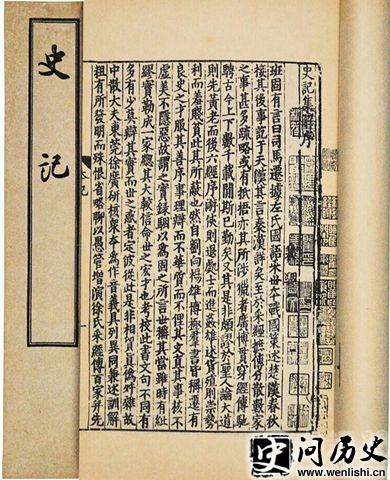 史記
史記集解序
班固有言曰司馬遷據左氏國語采世本戰國策述楚漢春秋
接其後事訖于天漢其言秦漢詳矣至於采經摭傳分散數家
之事甚多疏略或有抵捂亦其所涉獵者廣博貫穿經傳馳
騁古今上下數千載間斯已勤矣又其是非頗謬於聖人論大道
則先黃老而後六經序游俠則退處士而進姦雄述貨殖則崇勢
利而羞賤貧此其所蔽也然自劉向楊雄博極羣書皆稱遷有
良史之才服其善序事理辯而不華質而不俚其文直其事核不
虛美不隱惡故謂之實錄駰以爲固之所言世稱其當雖時有紕
繆實勒成一家總其大較信命世之宏才也考校此書文句不同有
多有少莫辯其實而世之惑者定彼從此是非相貿真偽舛雜故
中散大夫東莞徐廣研核衆本爲作音義具列異同兼述訓解
粗有所發明而殊恨省略聊以愚管增演徐氏采經傳百家并先
史记
问历史
www.wenlishi.cn